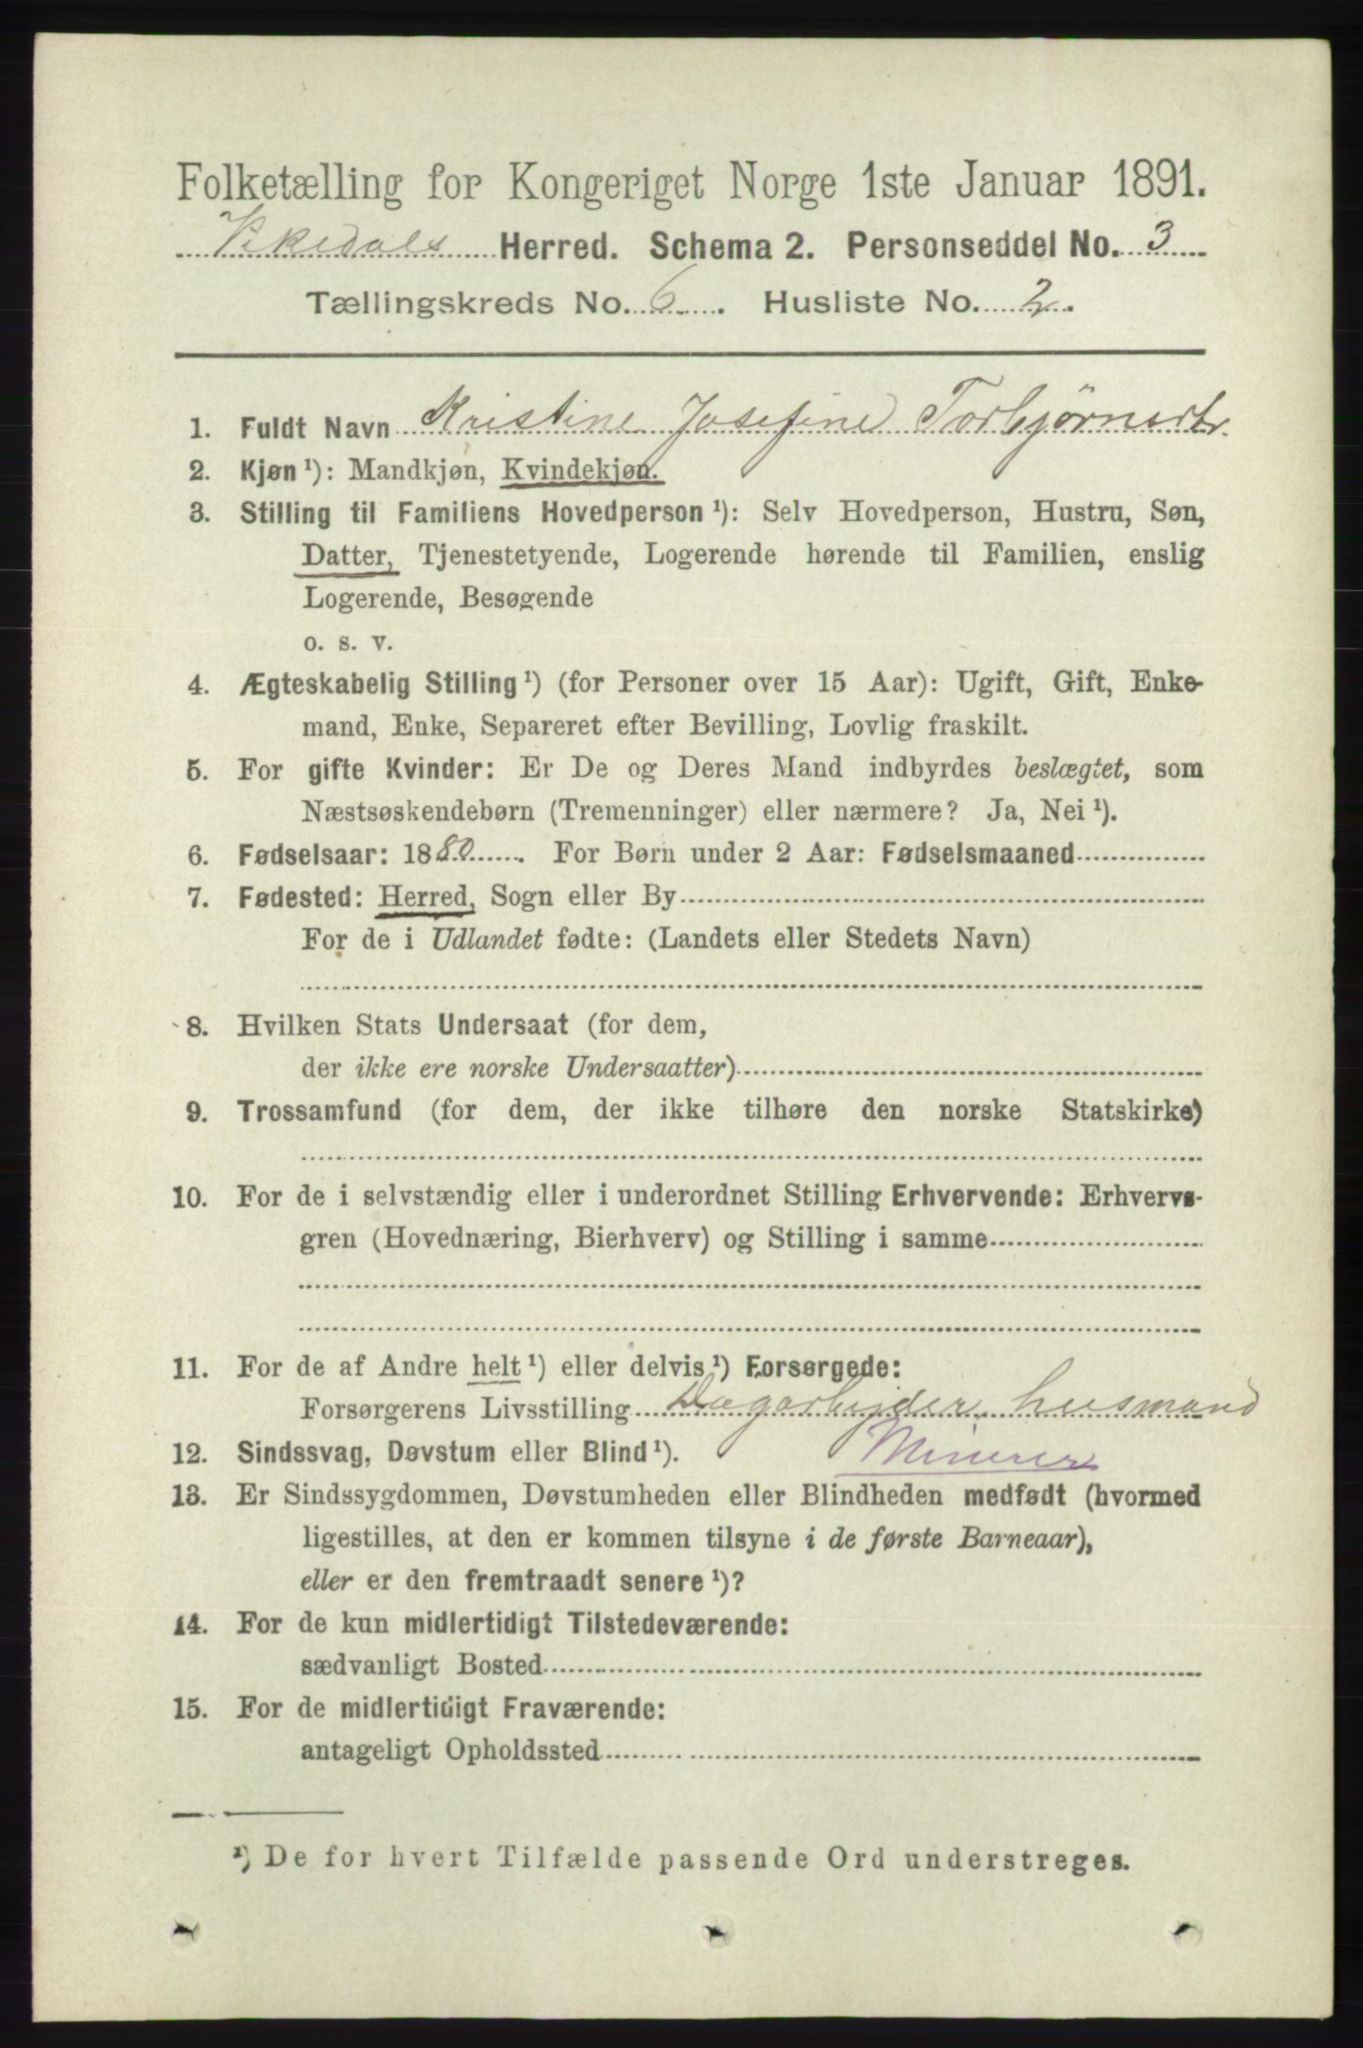 Folketælling for Kongeriget Norge 1ste Januar 1891.
Vikedals Herred. Schema 2. Personseddel No. 3
Tællingskreds No. 6. Husliste No. 2.
1. Fuldt Navn Kristine Josefine Torbjørnsdtr.
2. Kjøn ¹): Mandkjøn, Kvindekjøn.
3. Stilling til Familiens Hovedperson ¹): Selv Hovedperson, Hustru, Søn,
Datter, Tjenestetyende, Logerende hørende til Familien, enslig
Logerende, Besøgende
o. s. v.
4. Ægteskabelig Stilling ¹) (for Personer over 15 Aar): Ugift, Gift, Enke-
mand, Enke, Separeret efter Bevilling, Lovlig fraskilt.
5. For gifte Kvinder: Er De og Deres Mand indbyrdes beslægtet, som
Næstsøskendebørn (Tremenninger) eller nærmere? Ja, Nei ¹).
6. Fødselsaar: 1880. For Børn under 2 Aar: Fødselsmaaned
7. Fødested: Herred, Sogn eller By
For de i Udlandet fødte: (Landets eller Stedets Navn)
8. Hvilken Stats Undersaat (for dem,
der ikke ere norske Undersaatter)
9. Trossamfund (for dem, der ikke tilhøre den norske Statskirke)
10. For de i selvstændig eller i underordnet Stilling Erhvervende: Erhvervs-
gren (Hovednæring, Bierhverv) og Stilling i samme
11. For de af Andre helt ¹) eller delvis ¹) Forsørgede:
Forsørgerens Livsstilling Dagarbejder, husmand
12. Sindssvag, Døvstum eller Blind ¹). Minerer
13. Er Sindssygdommen, Døvstumheden eller Blindheden medfødt (hvormed
ligestilles, at den er kommen tilsyne i de første Barneaar),
eller er den fremtraadt senere ¹)?
14. For de kun midlertidigt Tilstedeværende:
sædvanligt Bosted
15. For de midlertidigt Fraværende:
antageligt Opholdssted
¹) De for hvert Tilfælde passende Ord understreges.